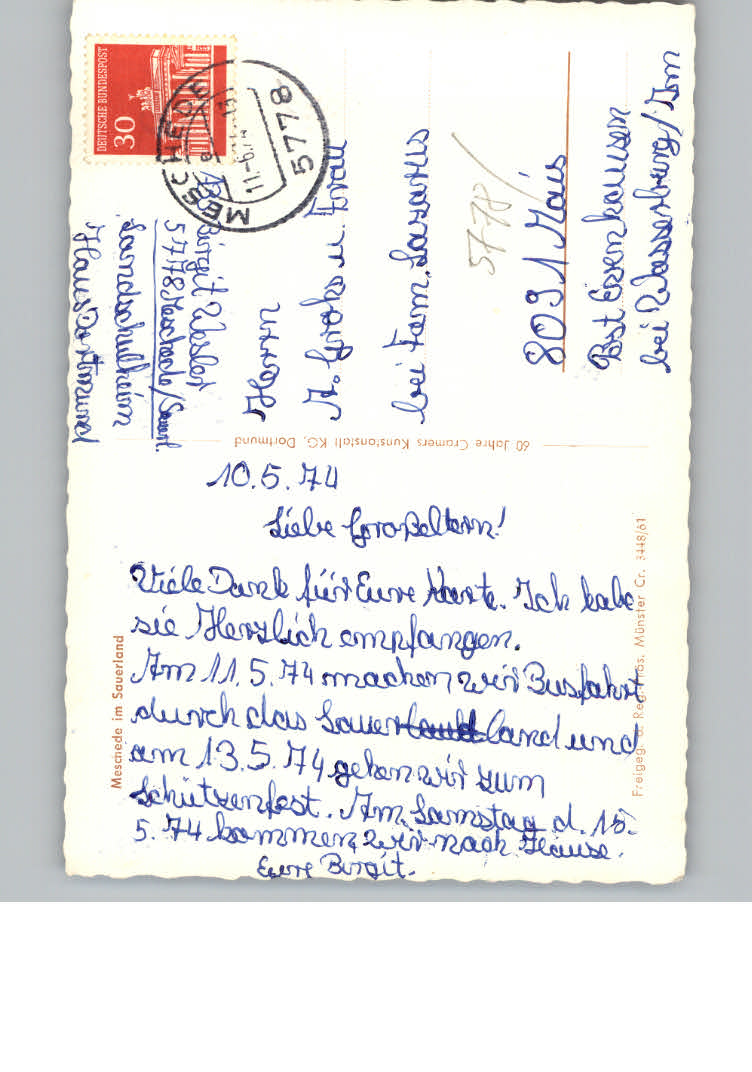 10.5.74
Liebe Großeltern!
Viele Dank für Eure Karte. Ich habe
sie Herzlich empfangen.
Am 11.5.74 machen wir Busfahrt
durch das Sauerland und
am 13.5.74 gehen wir zum
Schützenfest. Am Samstag d. 15.
5.74 kommen wir nach Hause.
Eure Birgit.
Meschede im Sauerland
Freigeg. d. Reg. Präs. Münster Cr. 3448/61
60 Jahre Cramers Kunstanstalt KG, Dortmund
DEUTSCHE BUNDESPOST
30
MESCHEDE
11.-6.74
5778
Birgit
5778 Meschede/Sauerl.
Landschulheim
Haus Dortmund
Herrn
u. Frau
bei Fam. Lazarus
5778
8091
Post
bei Wasserburg/Inn